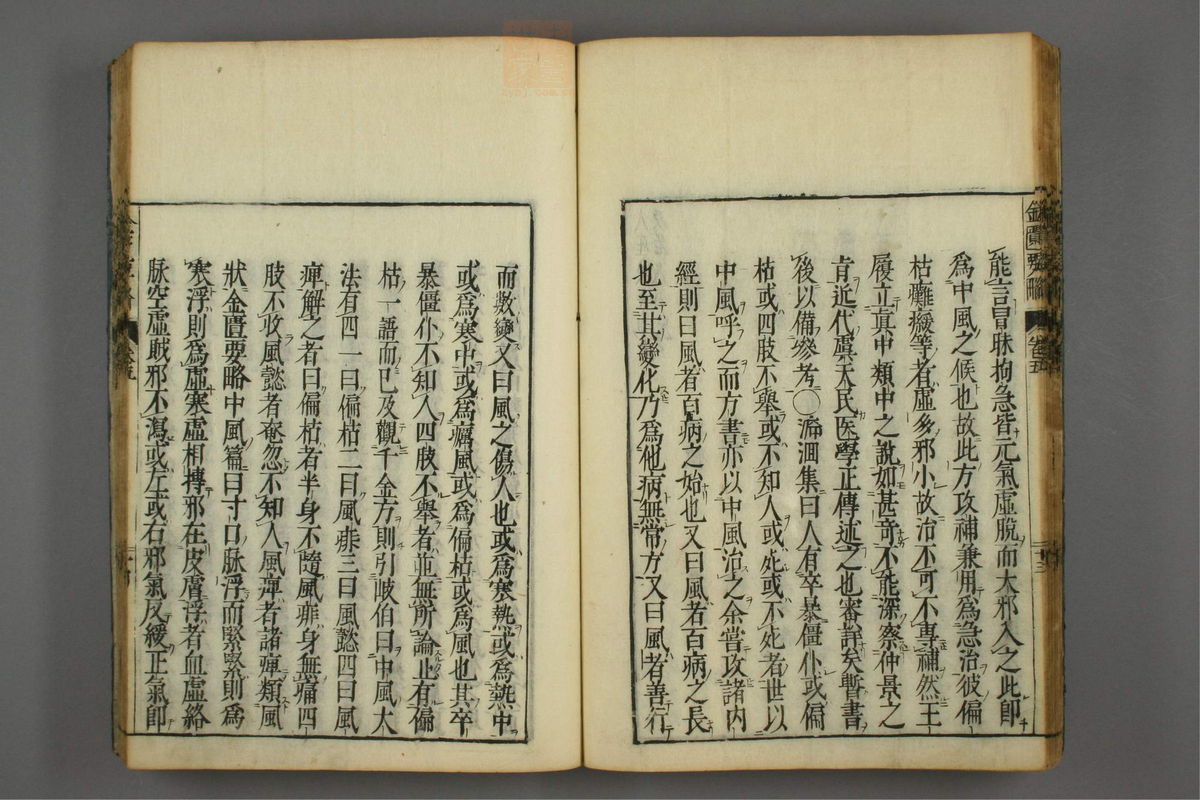 能言冒昧拘急皆元氣虛脫而大邪入之此即
為中風之候也故此方攻補兼用為急治彼偏
枯難緩等者虛多邪小故治不可不專補然王
履立真中類中之說如甚奇不能深察仲景之
肯近代虞天民医學正傳述之也審詳矣暫書
後以備參考〇泝洄集曰人有卒暴僵仆或偏
枯或四肢不舉或不知人或死或不死者世以
中風呼之而方書亦以中風治之余嘗攻諸內
經則曰風者百病之始也又曰風者百病之長
也至其變化乃為他病無常方又曰風者善行
而數變又曰風之傷人也或為寒熱或為熱中
或為寒中或為癘風或為偏枯或為風也其卒
暴僵仆不知人四肢不舉者並無所論止有偏
枯一語而已及觀千金方則引岐伯曰中風大
法有四一曰偏枯二曰風痱三曰風懿四曰風
痺解之者曰偏枯者半身不隨風痱身無痛四
肢不收風懿者奄忽不知人風痺者諸痺類風
狀金匱要略中風篇曰寸口脉浮而緊緊則為
寒浮則為虛寒虛相摶邪在皮膚浮者血虛絡
脉空虛賊邪不瀉或左或右邪氣反緩正氣即